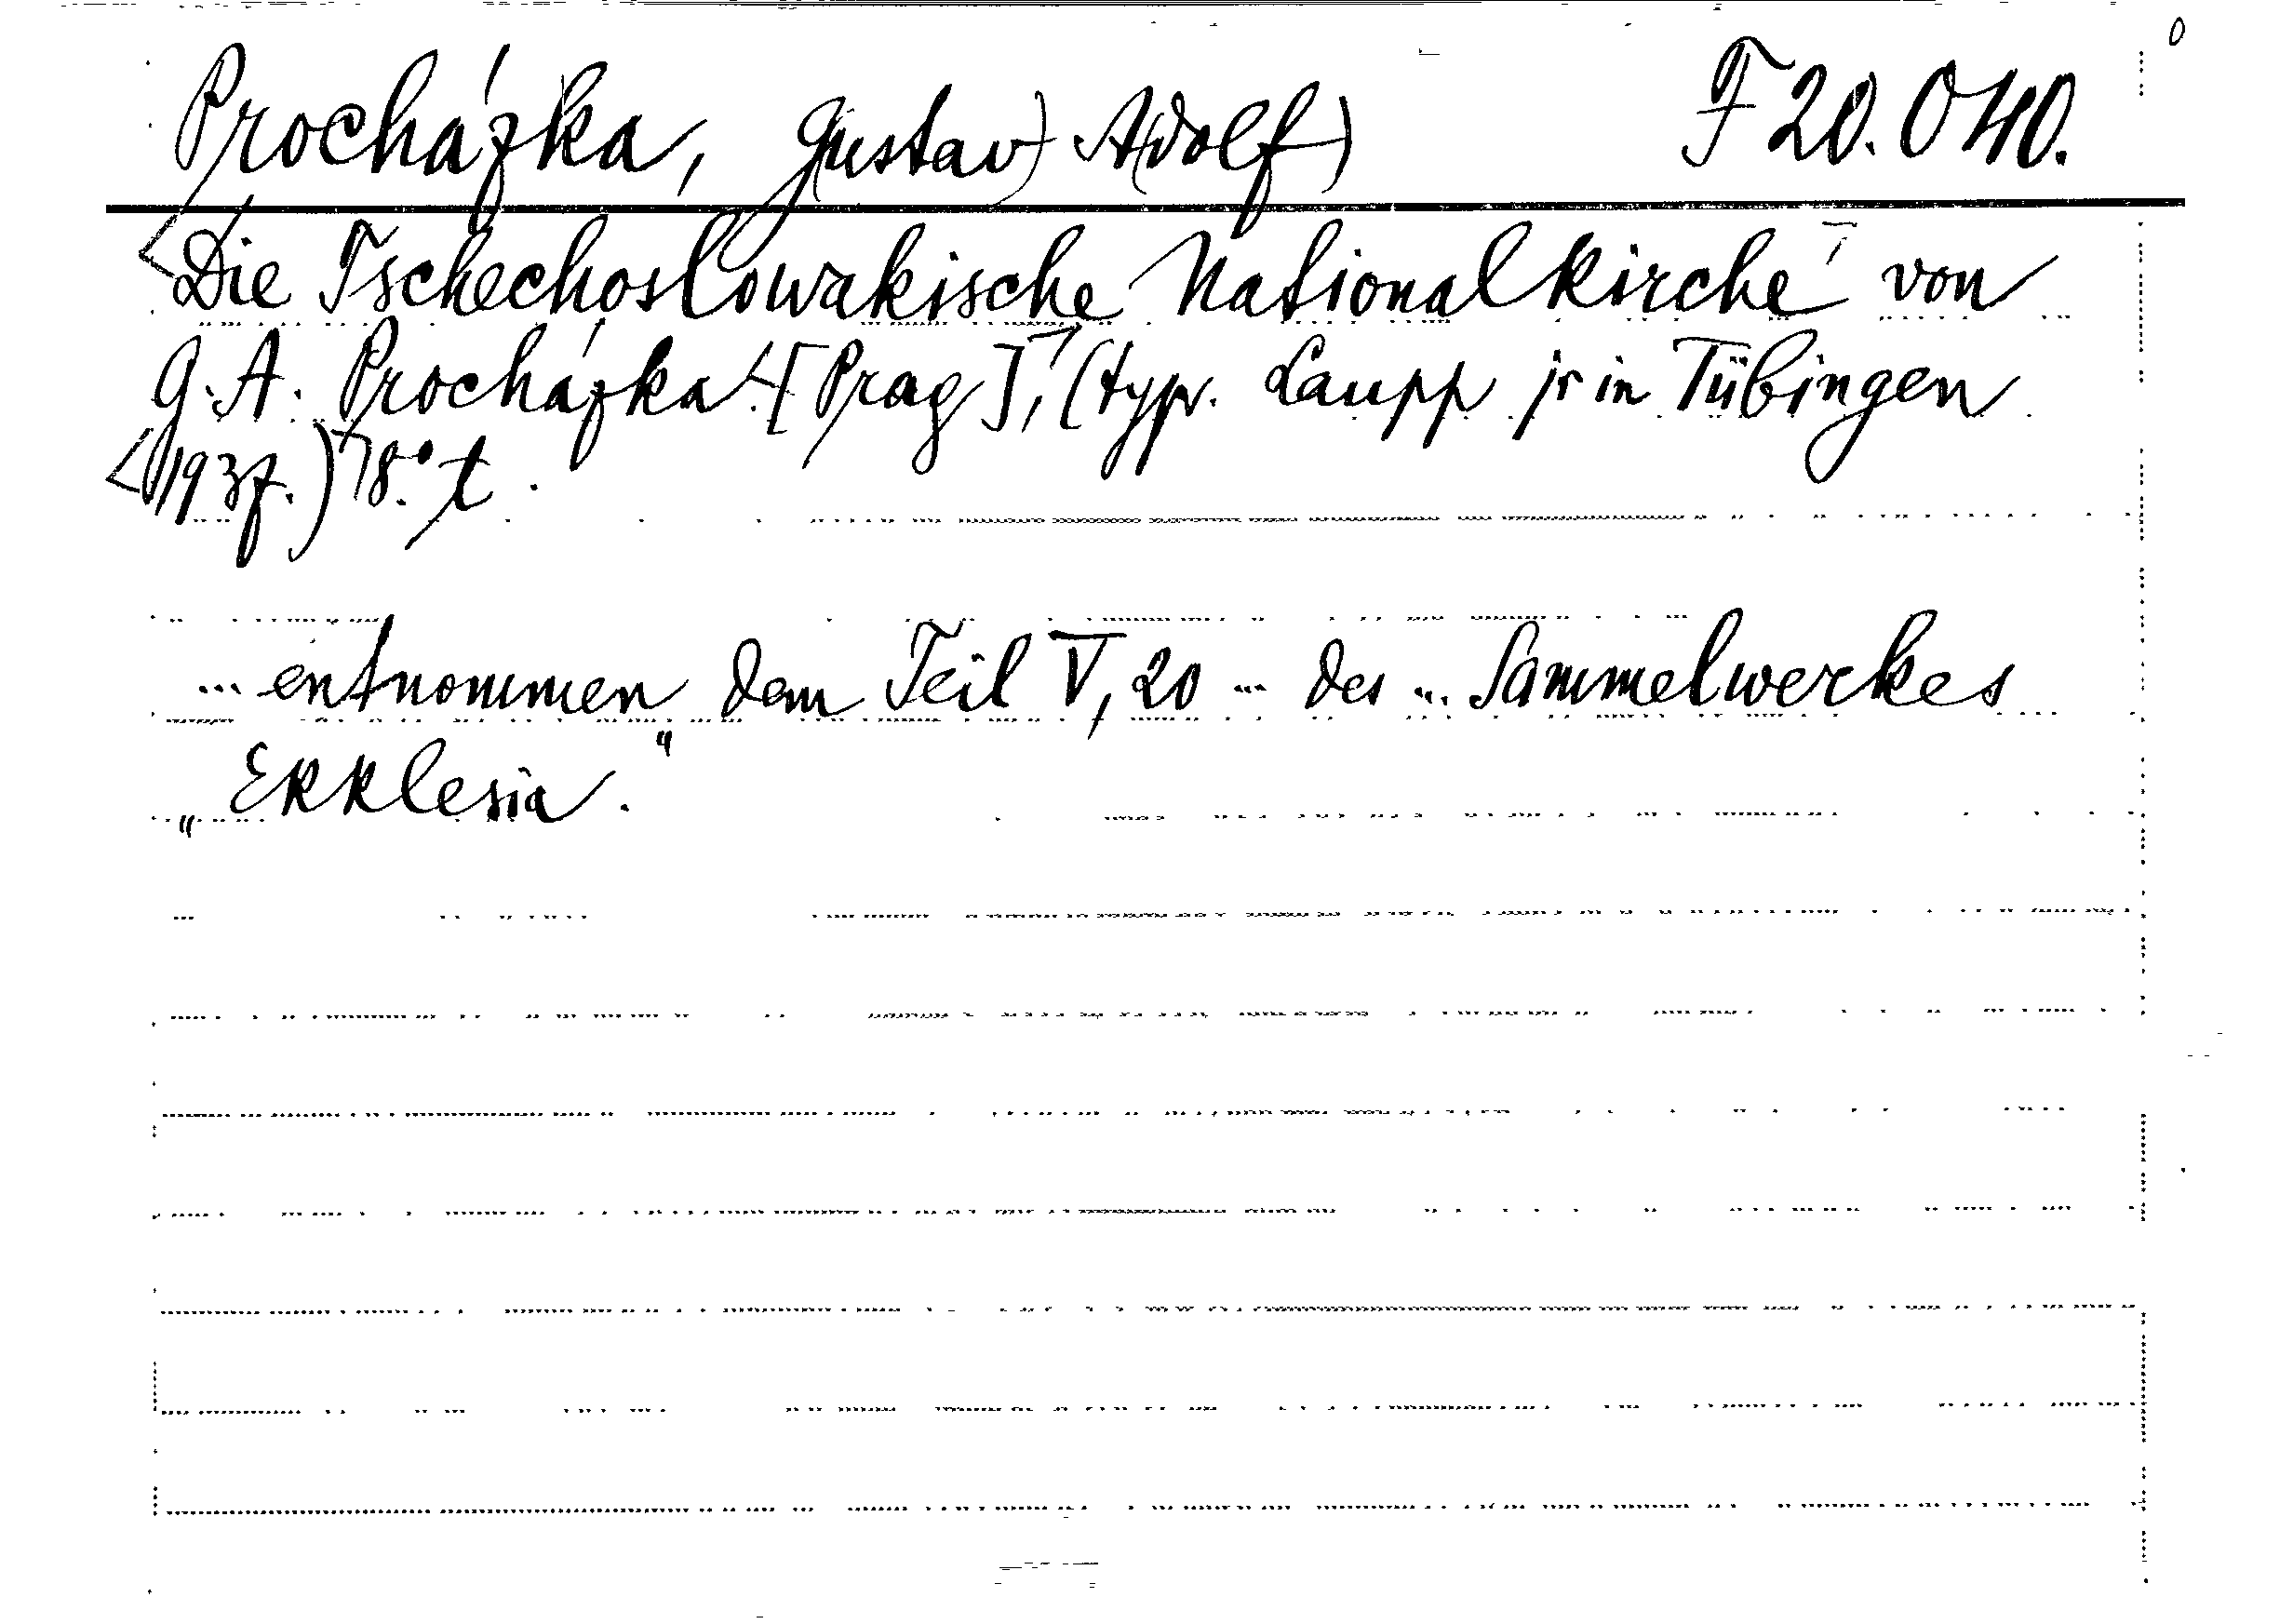 Procházka, G(ustav) A(dolf) F 20.040.
<Die Tschechoslowakische Nationalkirche von
G. A. Procházka. [Prag], (typ. Laupp jr in Tübingen
<193 .) 8.° t.
... entnommen dem Teil V, 20 ... des ... Sammelwerkes
„Ekklesia."